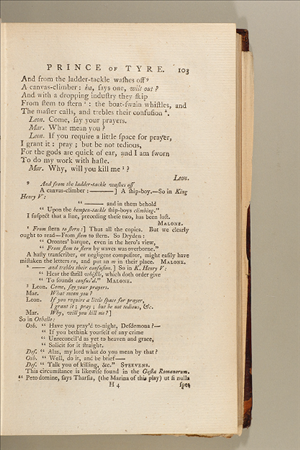 PRINCE OF TYRE. 103
And from the ladder-tackle washes off ⁹
A canvas-climber: ha, says one, wilt out?
And with a dropping industry they skip
From stem to stern ¹: the boat-swain whistles, and
The master calls, and trebles their confusion ².
Leon. Come, say your prayers.
Mar. What mean you?
Leon. If you require a little space for prayer,
I grant it: pray; but be not tedious,
For the gods are quick of ear, and I am sworn
To do my work with haste.
Mar. Why, will you kill me ³?
Leon.
⁹ And from the ladder-tackle washes off
A canvas-climber: ———] A ship-boy.—So in King
Henry V:
" ——— and in them behold
" Upon the hempen-tackle ship-boys climbing."
I suspect that a line, preceding these two, has been lost.
MALONE.
¹ From stem to stern:] Thus all the copies. But we clearly
ought to read—From stem to stern. So Dryden:
" Orontes' barque, even in the hero's view,
" From stem to stern by waves was overborne."
A hasty transcriber, or negligent compositor, might easily have
mistaken the letters and put an in their place. MALONE.
² — and trebles their confusion.] So in K. Henry V:
" Hear the shrill whistle, which doth order give
" To sounds confus'd." MALONE.
³ Leon. Come, say your prayers.
Mar. What mean you?
Leon. If you require a little space for prayer,
I grant it; pray; but be not tedious, &c.
Mar. Why, will you kill me?]
So in Othello:
Oth. " Have you pray'd to-night, Desdemona?—
Oth. " If you bethink yourself of any crime
" Unreconcil'd as yet to heaven and grace,
" Solicit for it straight.
Des. " Alas, my lord what do you mean by that?
Oth. " Well, do it, and be brief——
Des. " Talk you of killing, &c." STEEVENS.
This circumstance is likewise found in the Gesta Romanorum.
" Peto domine, says Tharsia, (the Marina of this play) ut si nulla
H 4 spes